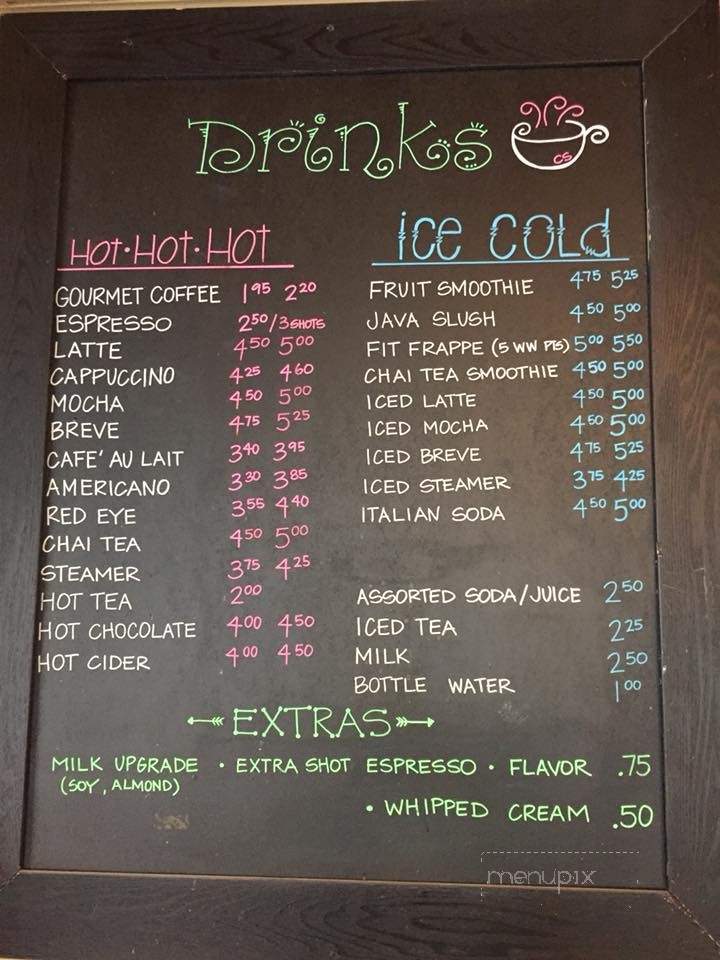 Drinks
CS
HOT·HOT·HOT
GOURMET COFFEE 1.95 2.20
ESPRESSO 2.50/3 SHOTS
LATTE 4.50 5.00
CAPPUCCINO 4.25 4.60
MOCHA 4.50 5.00
BREVE 4.75 5.25
CAFE' AU LAIT 3.40 3.95
AMERICANO 3.30 3.85
RED EYE 3.55 4.40
CHAI TEA 4.50 5.00
STEAMER 3.75 4.25
HOT TEA 2.00
HOT CHOCOLATE 4.00 4.50
HOT CIDER 4.00 4.50
ice COLd
FRUIT SMOOTHIE 4.75 5.25
JAVA SLUSH 4.50 5.00
FIT FRAPPE (5 WW PTS) 5.00 5.50
CHAI TEA SMOOTHIE 4.50 5.00
ICED LATTE 4.50 5.00
ICED MOCHA 4.50 5.00
ICED BREVE 4.75 5.25
ICED STEAMER 3.75 4.25
ITALIAN SODA 4.50 5.00
ASSORTED SODA/JUICE 2.50
ICED TEA 2.25
MILK 2.50
BOTTLE WATER 1.00
EXTRAS
MILK UPGRADE · EXTRA SHOT ESPRESSO · FLAVOR .75
(SOY, ALMOND)
· WHIPPED CREAM .50
menupix